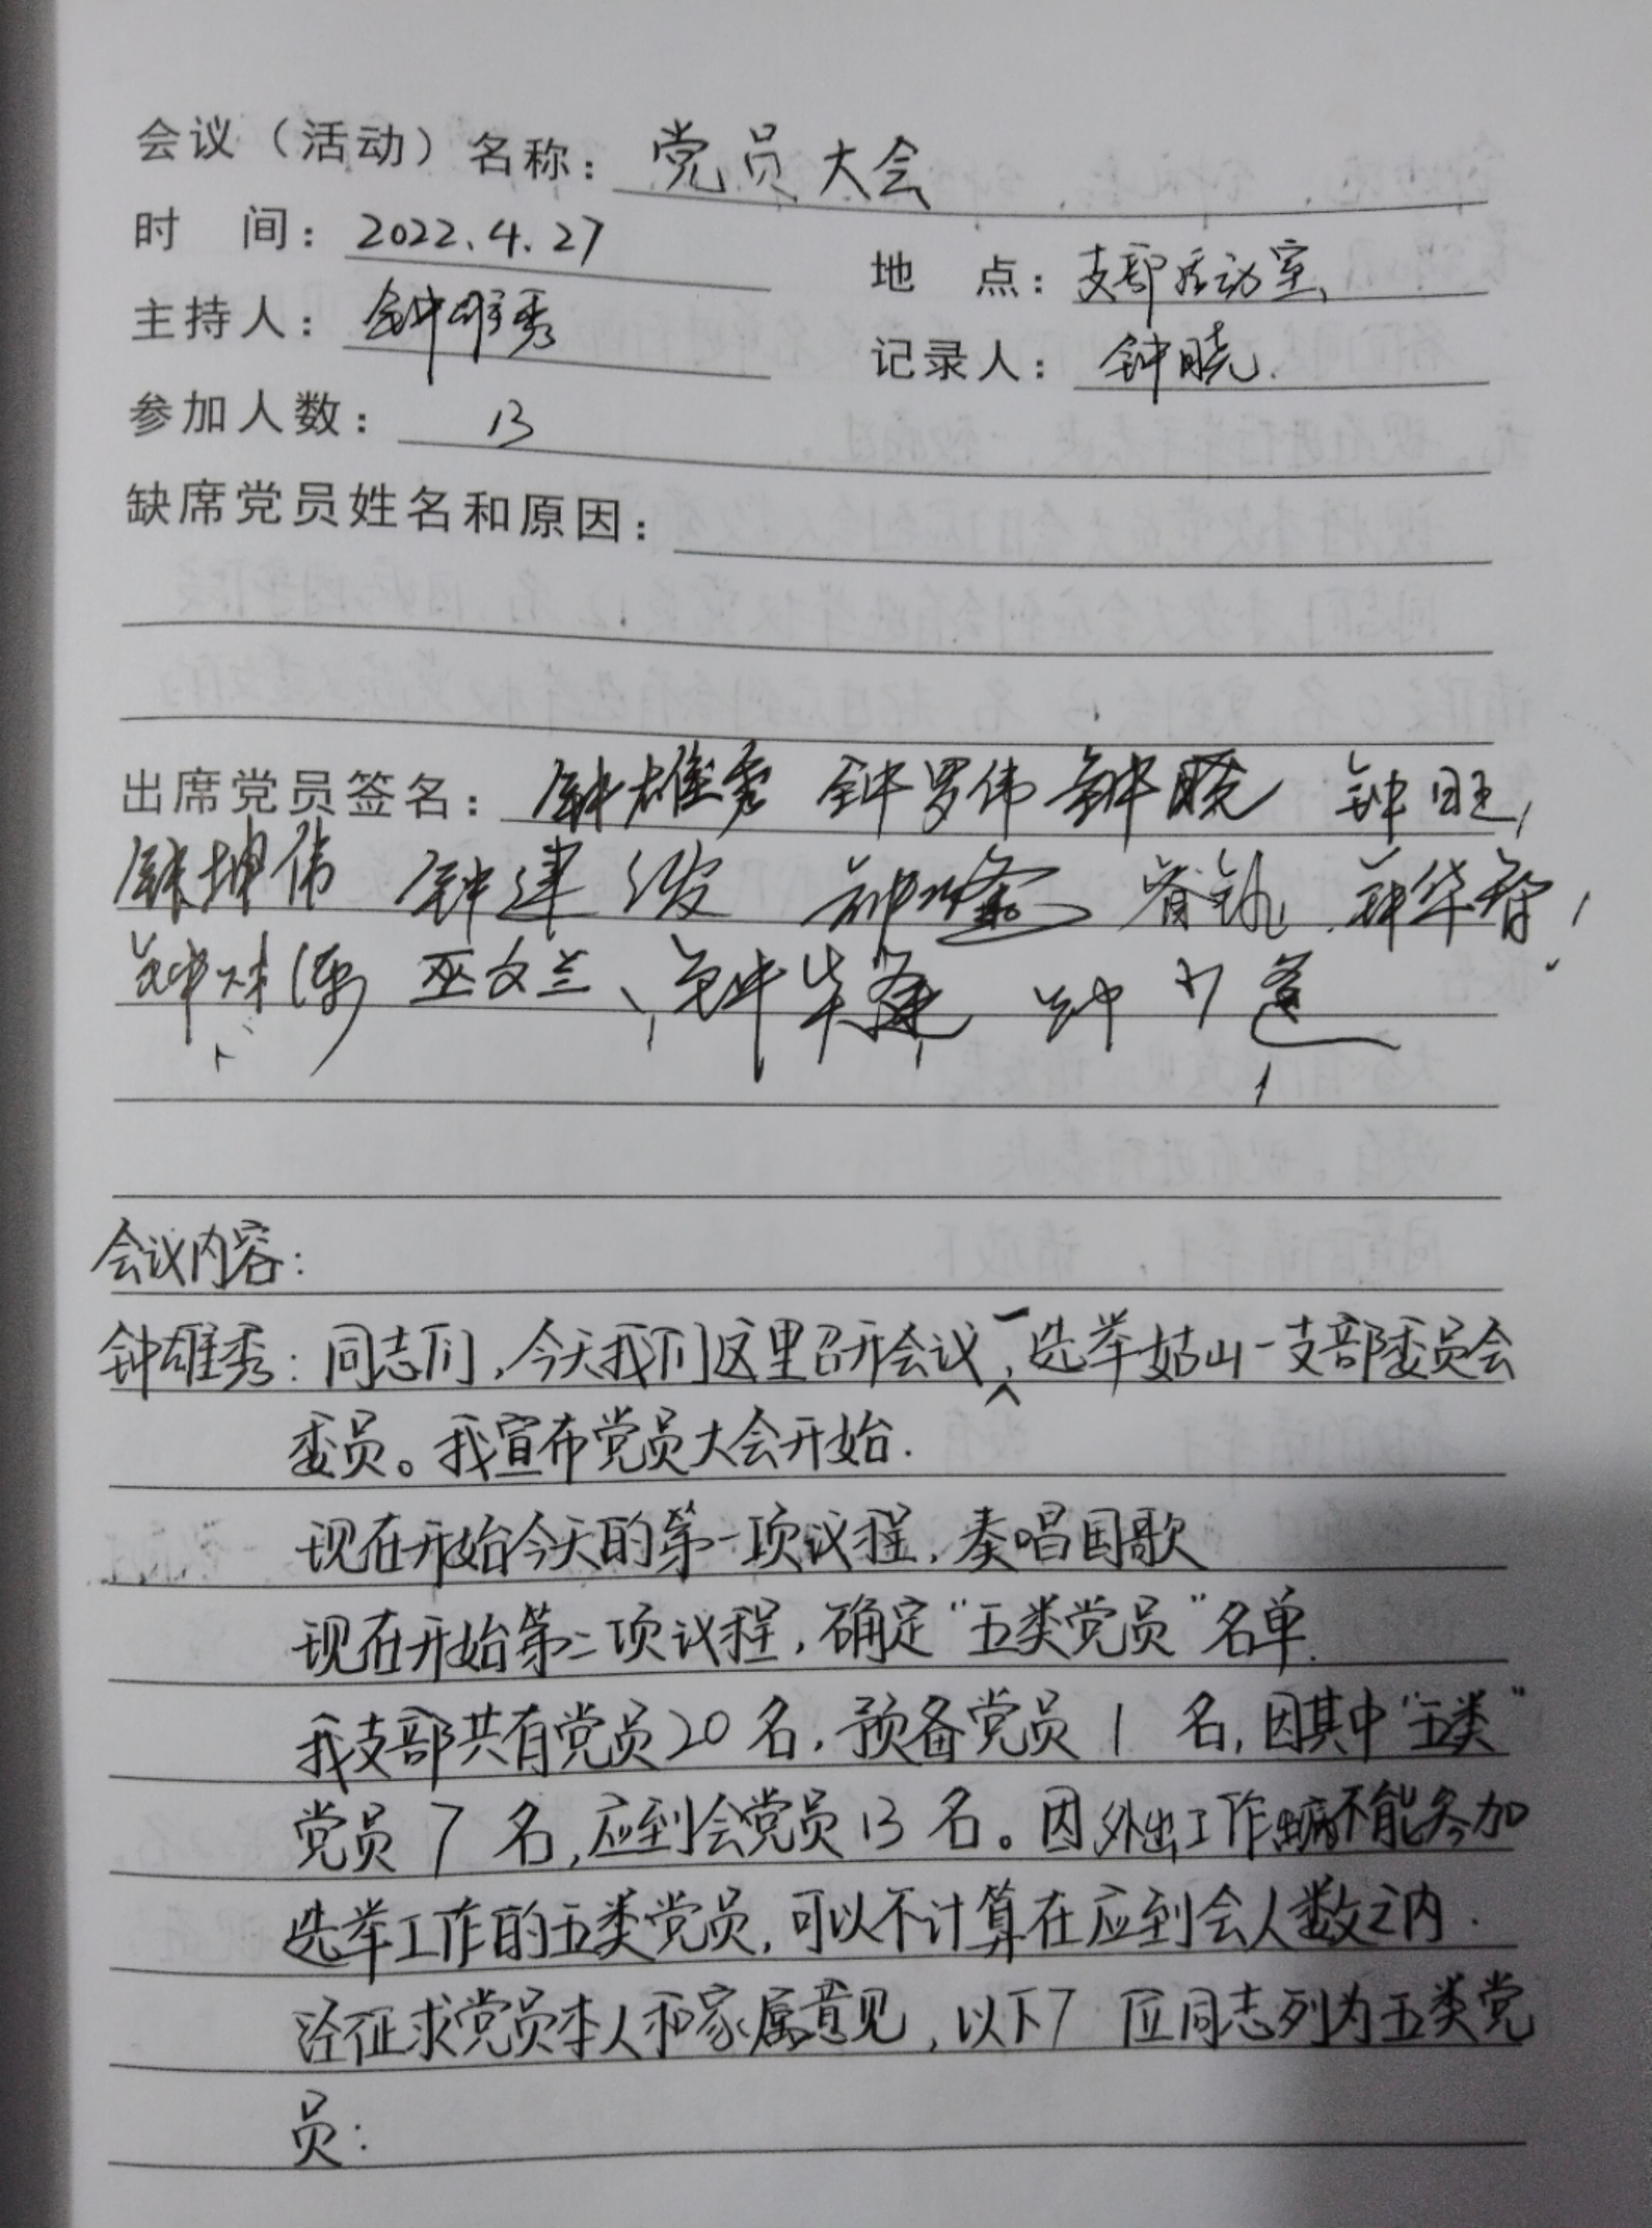 会议（活动）名称：党员大会
时 间：2022.4.27 地 点：支部活动室
主持人：钟雄秀 记录人：钟晓.
参加人数：13
缺席党员姓名和原因：
出席党员签名：钟雄秀 钟罗伟 钟晓 钟旺
钟坤伟 钟建 钟华
巫文兰、钟华 钟
会议内容：
钟雄秀：同志们，今天我们这里召开会议，选举姑山一支部委员会
委员。我宣布党员大会开始.
现在开始今天的第一项议程，奏唱国歌
现在开始第二项议程，确定“五类党员”名单.
我支部共有党员20名，预备党员1名，因其中“五类”
党员7名，应到会党员13名。因外出工作 不能参加
选举工作的五类党员，可以不计算在应到会人数之内.
经征求党员本人和家属意见，以下7位同志列为五类党
员：